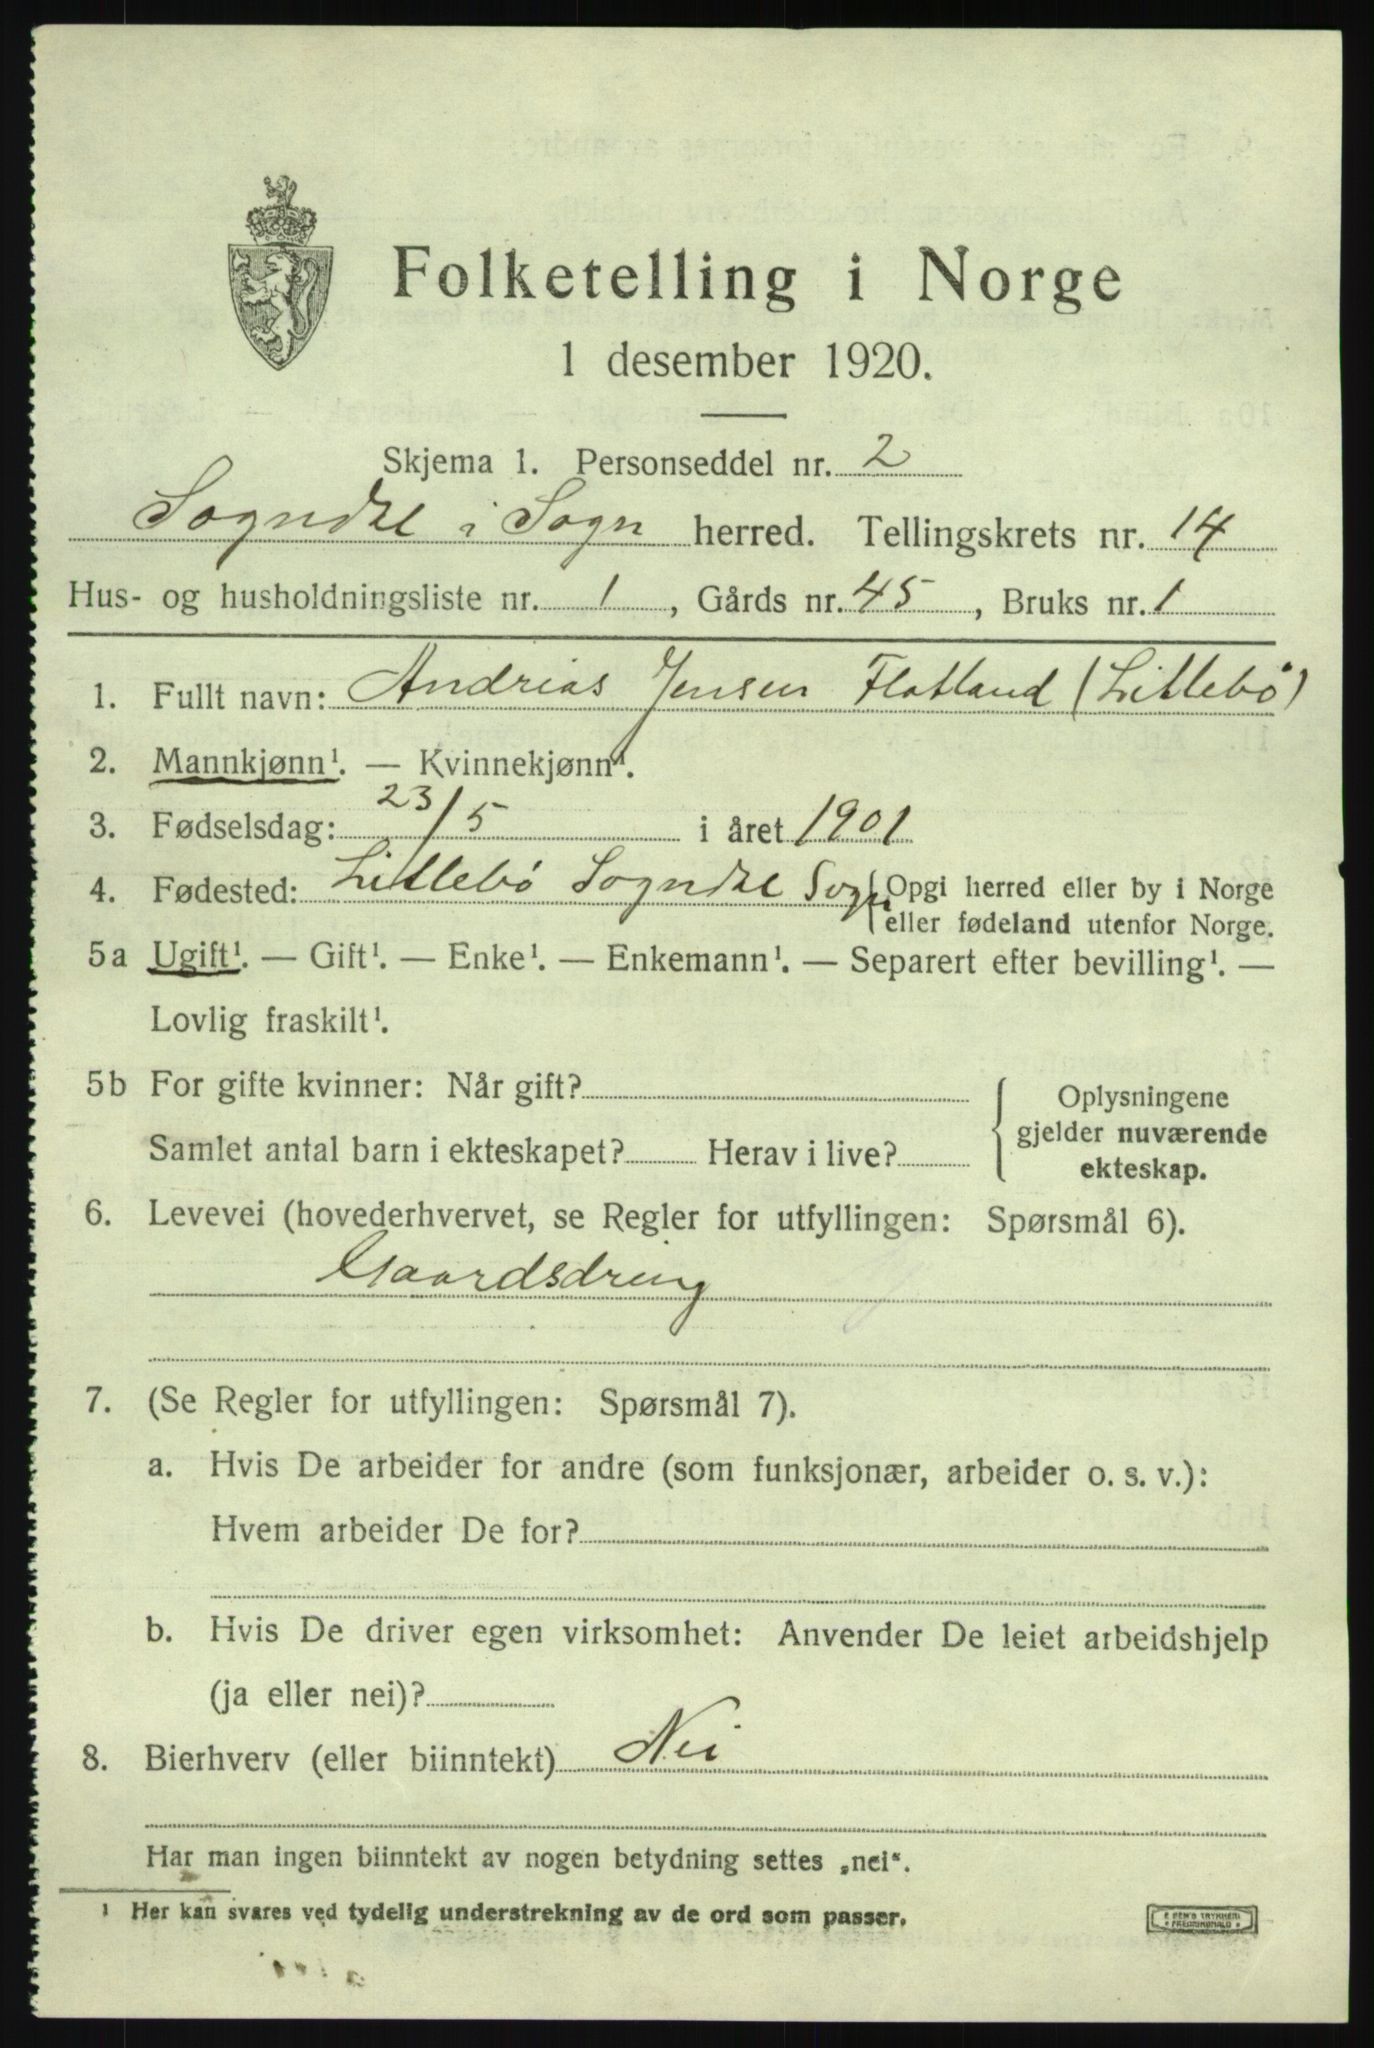 Folketelling i Norge
1 desember 1920.
Skjema 1. Personseddel nr. 2
Sogndal i Sogn herred. Tellingskrets nr. 14
Hus- og husholdningsliste nr. 1, Gårds nr. 45, Bruks nr. 1
1. Fullt navn: Andrias Jensen Flatland (Lillebö)
2. Mannkjønn¹. — Kvinnekjønn¹.
3. Fødselsdag: 23/5 i året 1901
4. Fødested: Lillebö Sogndal Sogn {Opgi herred eller by i Norge
eller fødeland utenfor Norge.
5a Ugift¹. — Gift¹. — Enke¹. — Enkemann¹. — Separert efter bevilling¹. —
Lovlig fraskilt¹.
5b For gifte kvinner: Når gift?
Samlet antal barn i ekteskapet? Herav i live?
Oplysningene
gjelder nuværende
ekteskap.
6. Levevei (hovederhvervet, se Regler for utfyllingen: Spørsmål 6).
Gaardsdreng
7. (Se Regler for utfyllingen: Spørsmål 7).
a. Hvis De arbeider for andre (som funksjonær, arbeider o. s. v.):
Hvem arbeider De for?
b. Hvis De driver egen virksomhet: Anvender De leiet arbeidshjelp
(ja eller nei)?
8. Bierhverv (eller biinntekt) Nei
Har man ingen biinntekt av nogen betydning settes „nei“.
¹ Her kan svares ved tydelig understrekning av de ord som passer.